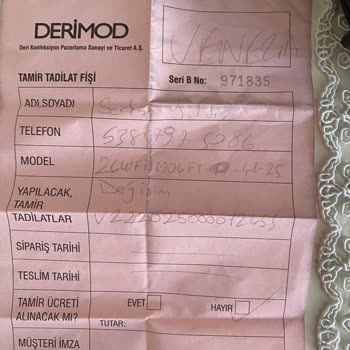 DERİMOD
Deri Konfeksiyon Pazarlama Sanayi ve Ticaret A.Ş.
VENEZIA
TAMİR TADİLAT FİŞİ
Seri B No: 971835
ADI, SOYADI
TELEFON 538 797 5286
MODEL
YAPILACAK, TAMİR TADİLATLAR Değişim
SİPARİŞ TARİHİ
TESLİM TARİHİ
TAMİR ÜCRETİ ALINACAK MI? EVET HAYIR
TUTAR:
MÜŞTERİ İMZA